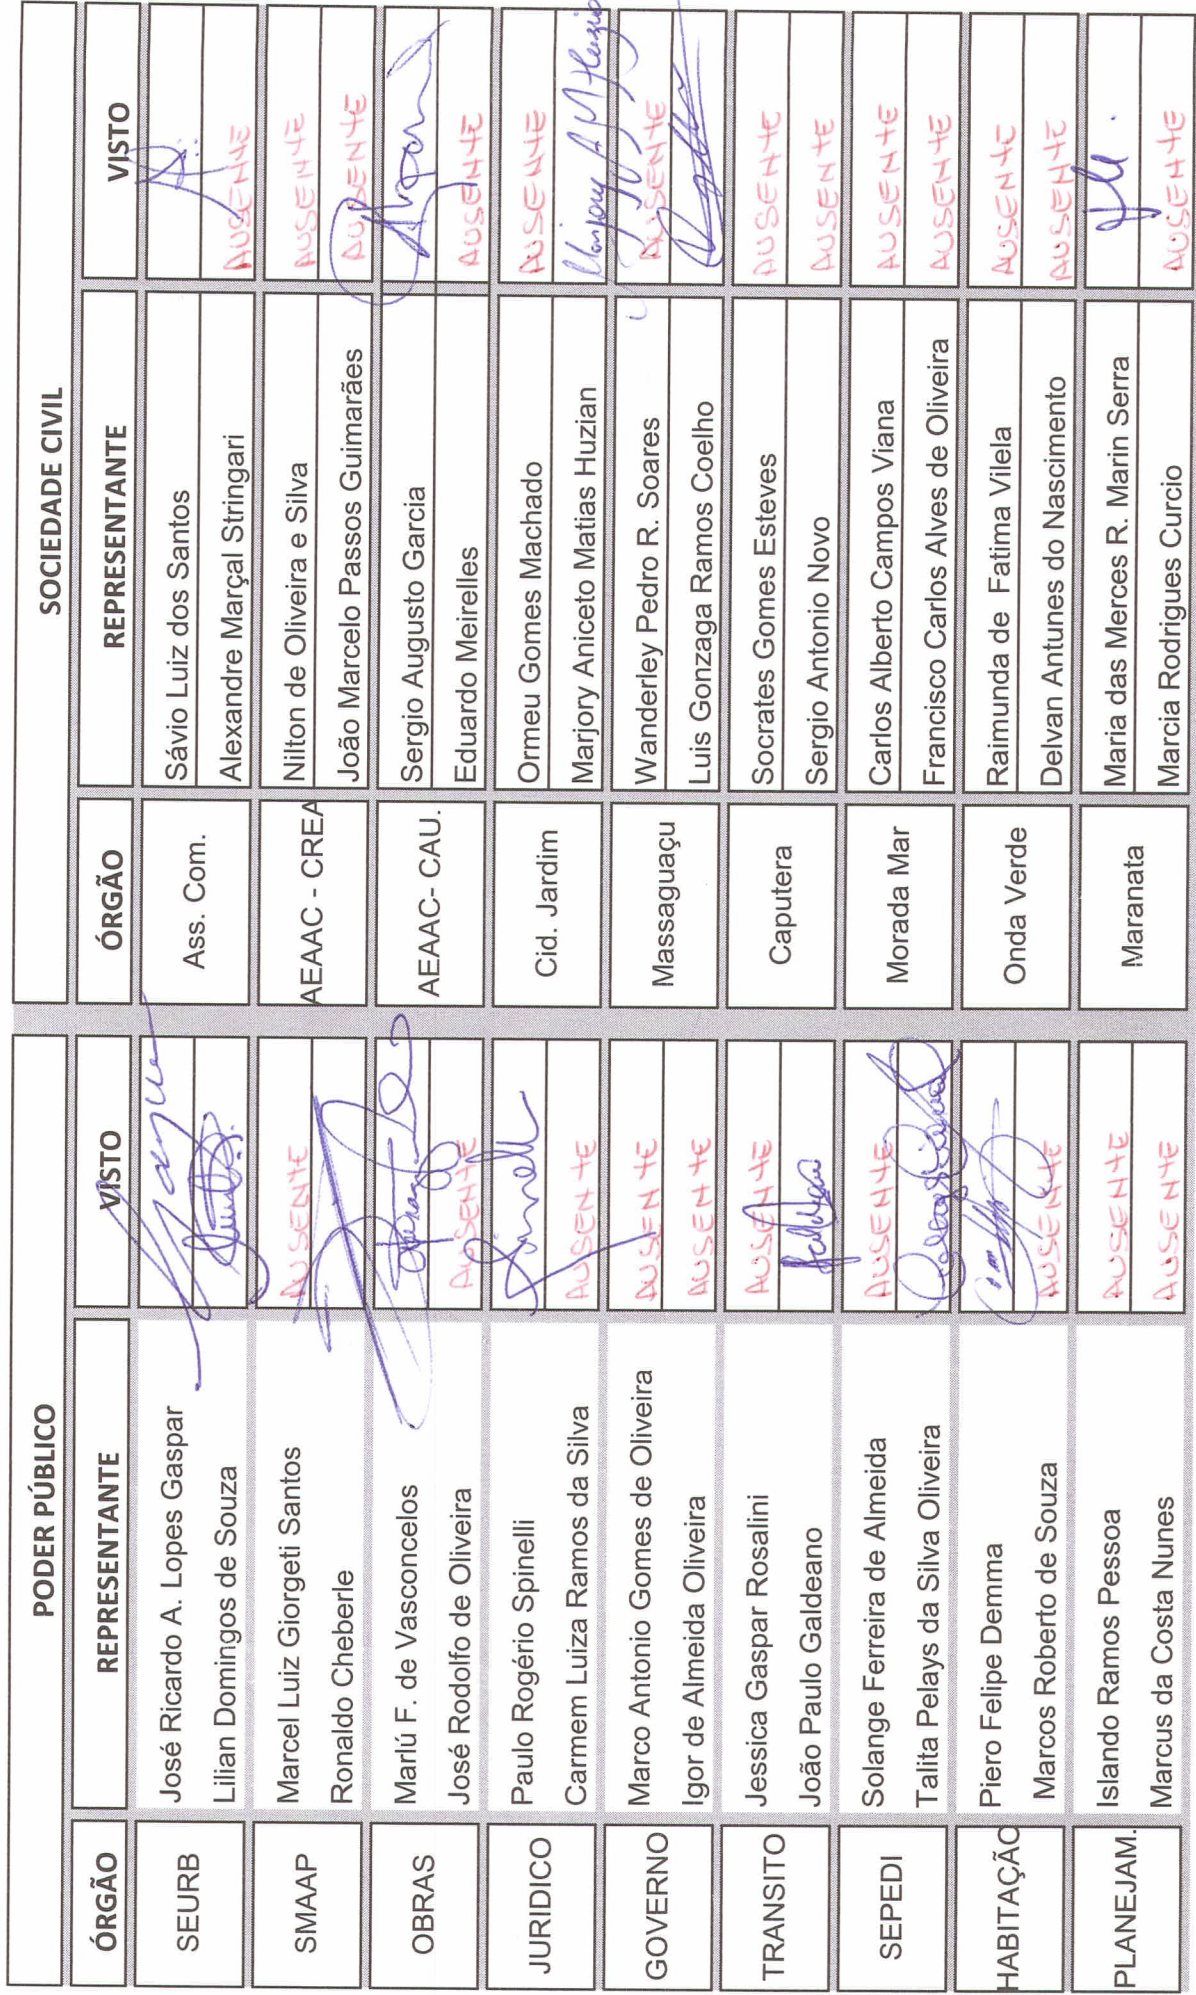 PODER PÚBLICO
ÓRGÃO REPRESENTANTE VISTO
SEURB José Ricardo A. Lopes Gaspar
Lilian Domingos de Souza
SMAAP Marcel Luiz Giorgeti Santos AUSENTE
Ronaldo Cheberle
OBRAS Marlú F. de Vasconcelos
José Rodolfo de Oliveira AUSENTE
JURIDICO Paulo Rogério Spinelli
Carmem Luiza Ramos da Silva AUSENTE
GOVERNO Marco Antonio Gomes de Oliveira AUSENTE
Igor de Almeida Oliveira AUSENTE
TRANSITO Jessica Gaspar Rosalini AUSENTE
João Paulo Galdeano
SEPEDI Solange Ferreira de Almeida AUSENTE
Talita Pelays da Silva Oliveira
HABITAÇÃO Piero Felipe Demma
Marcos Roberto de Souza AUSENTE
PLANEJAM. Islando Ramos Pessoa AUSENTE
Marcus da Costa Nunes AUSENTE
SOCIEDADE CIVIL
ÓRGÃO REPRESENTANTE VISTO
Ass. Com. Sávio Luiz dos Santos
Alexandre Marçal Stringari AUSENTE
AEAAC - CREA Nilton de Oliveira e Silva AUSENTE
João Marcelo Passos Guimarães AUSENTE
AEAAC- CAU. Sergio Augusto Garcia
Eduardo Meirelles AUSENTE
Cid. Jardim Ormeu Gomes Machado AUSENTE
Marjory Aniceto Matias Huzian
Massaguaçu Wanderley Pedro R. Soares AUSENTE
Luis Gonzaga Ramos Coelho
Caputera Socrates Gomes Esteves AUSENTE
Sergio Antonio Novo AUSENTE
Morada Mar Carlos Alberto Campos Viana AUSENTE
Francisco Carlos Alves de Oliveira AUSENTE
Onda Verde Raimunda de Fatima Vilela AUSENTE
Delvan Antunes do Nascimento AUSENTE
Maranata Maria das Merces R. Marin Serra
Marcia Rodrigues Curcio AUSENTE